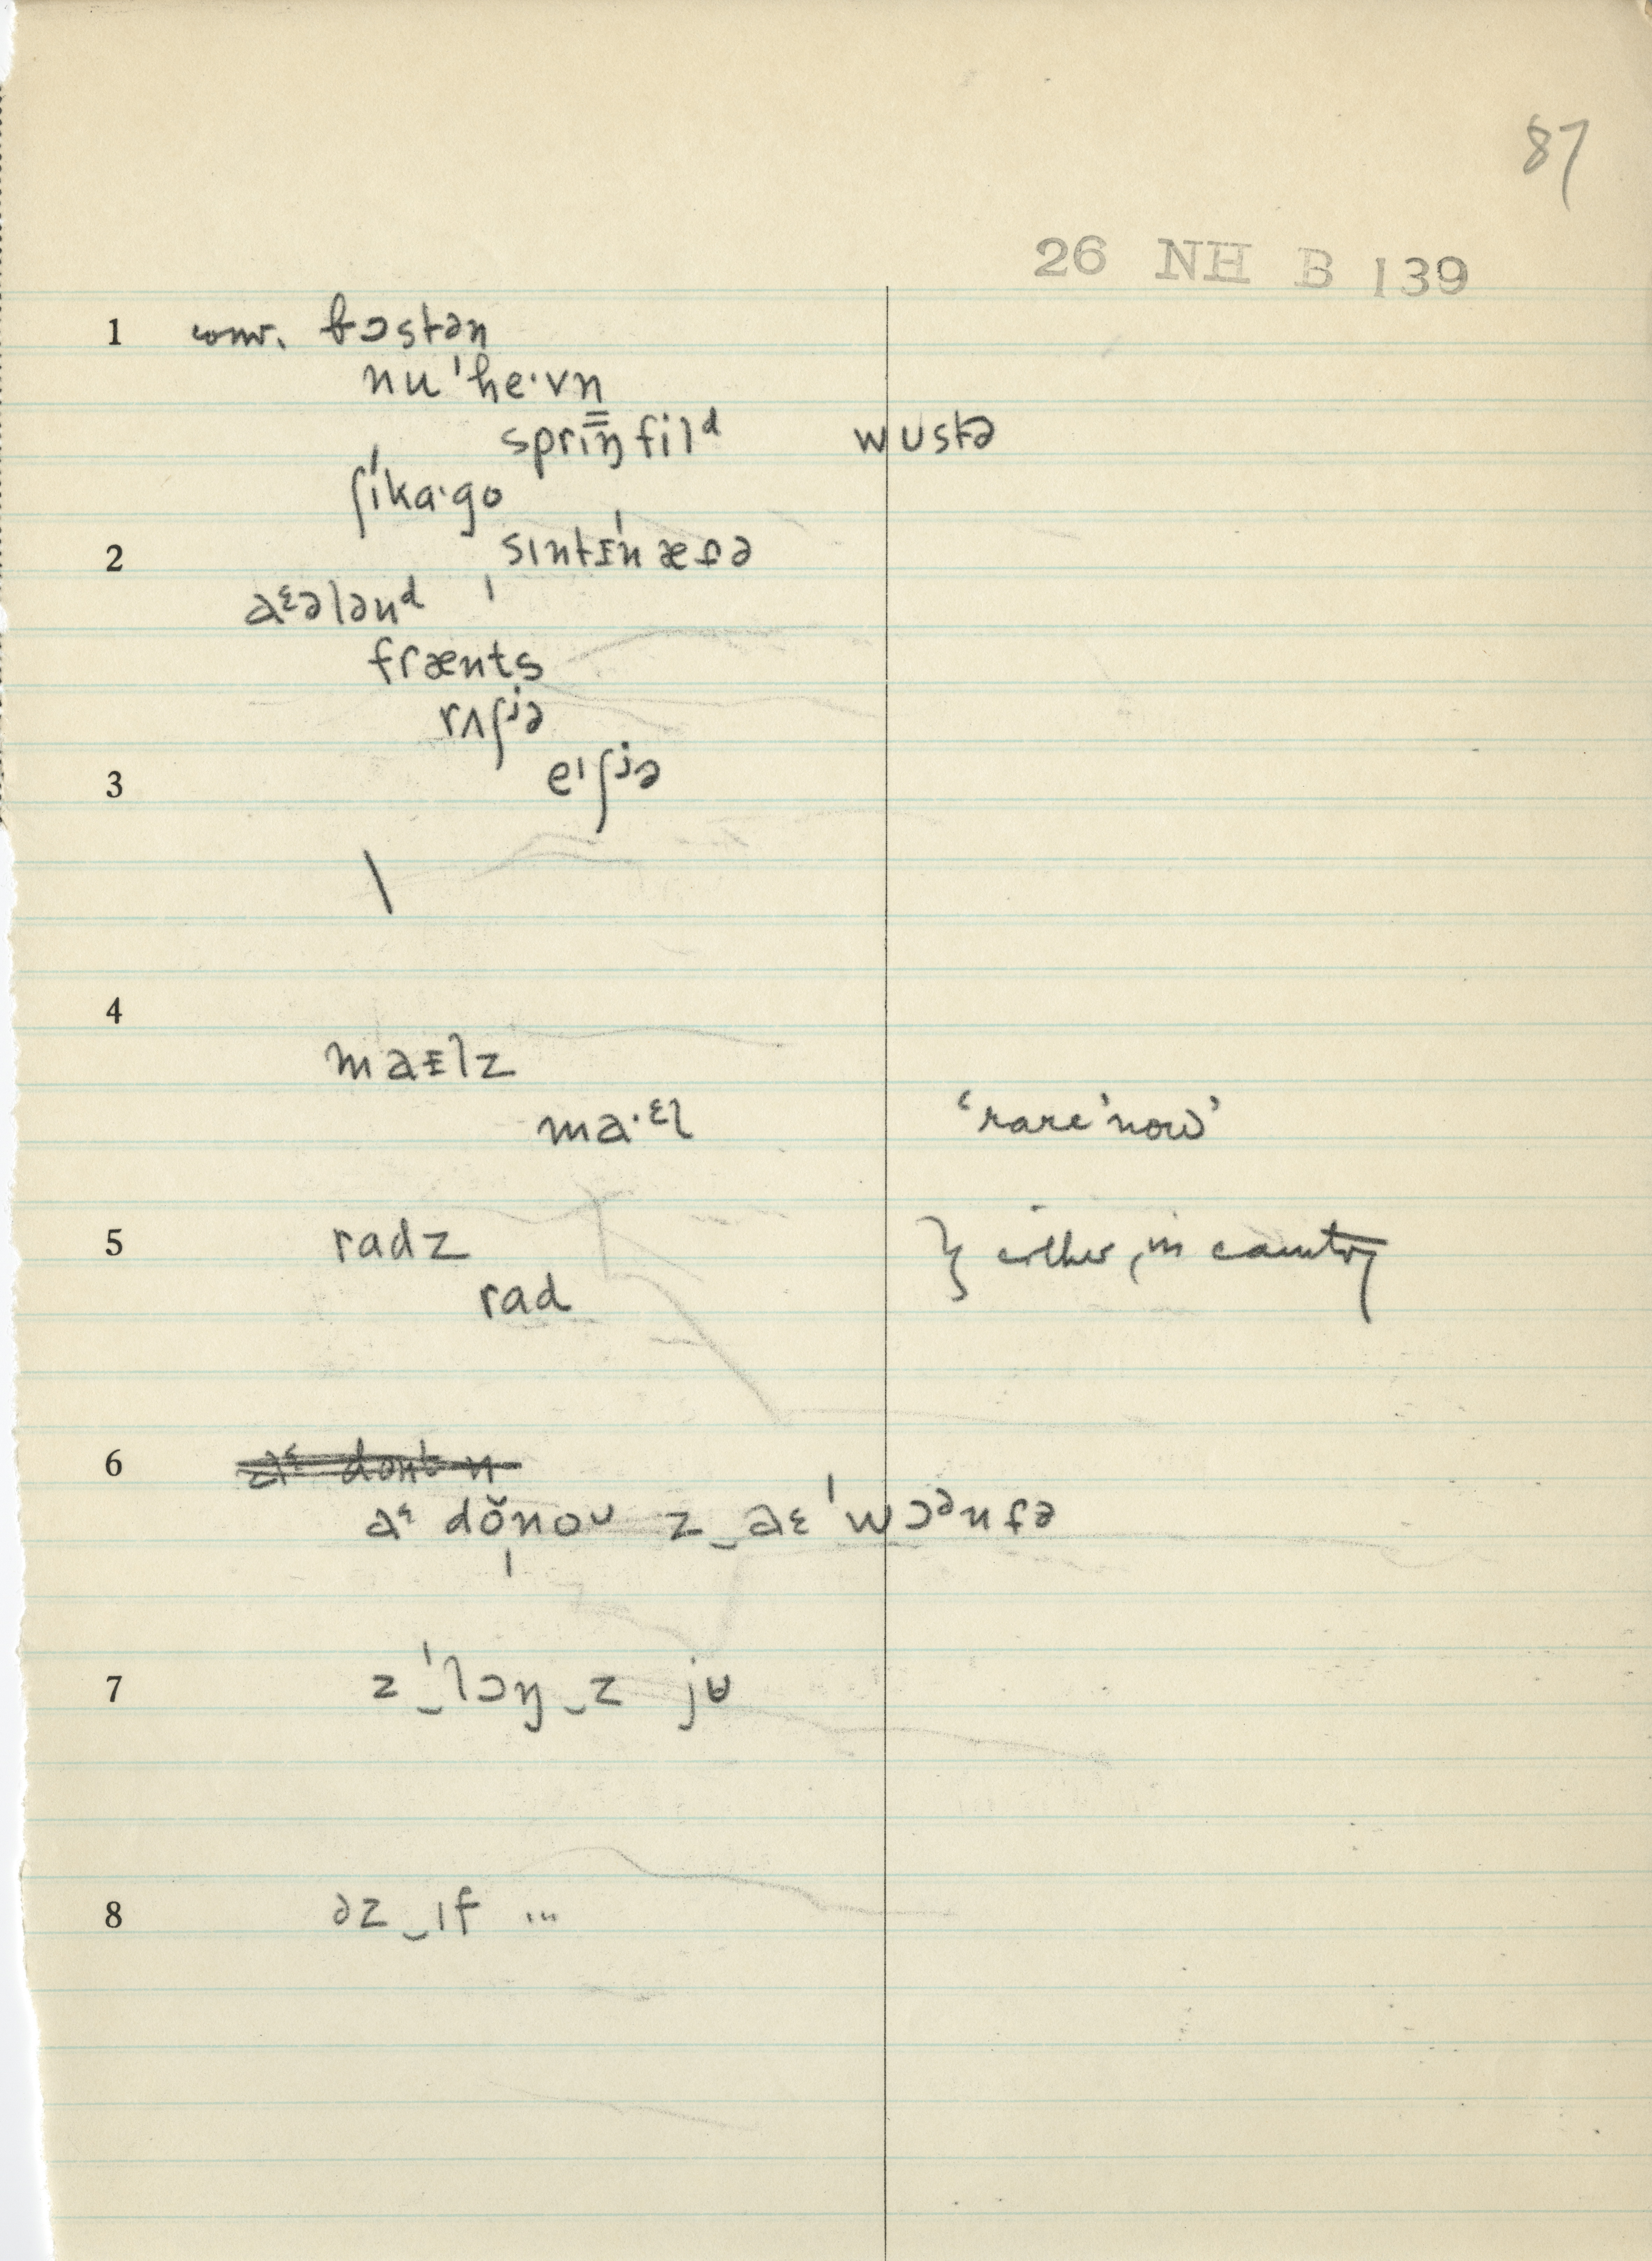 87
26 NH B 139
1 conv. bɔstən
nu'he·vn̩
sprɪŋfilᵈ wʊstə
ʃɪ'ka·go
2 sɪntɪ'næsə
aᵋələnᵈ
frænts
rʌʃʲə
eᶦʃʲə
3
\
4
maɪlz
ma·ᵋl 'rare 'now'
5 radz } either, in country
rad
6 aᵋ dont n
aᵋ dŏnoᶷ z‿aɛ 'wɔᵊnsə
7 z‿'lɔŋ‿z jʉ
8 əz‿ɪf ...